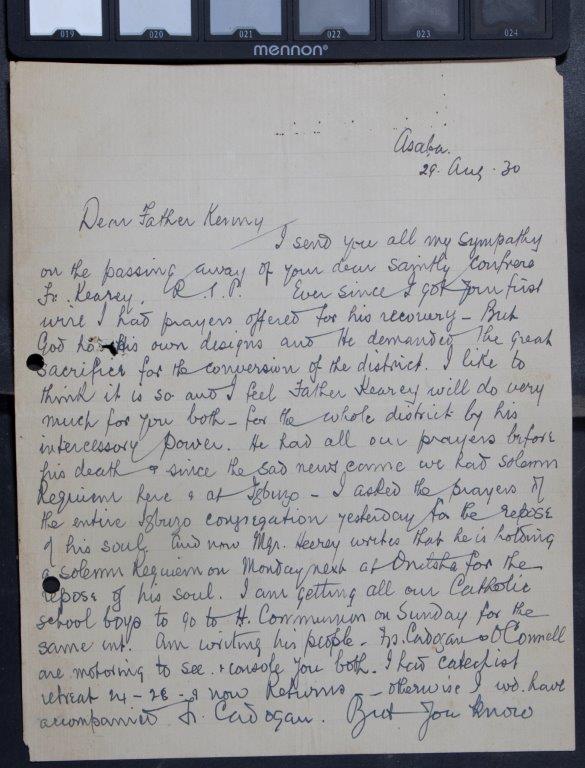 019 020 021 022 023 024
mennon®
Asaba.
29. Aug. 30
Dear Father Kenny
I send you all my sympathy
on the passing away of your dear saintly confrere
Fr. Kearey. R.I.P. Ever since I got your first
wire I had prayers offered for his recovery - But
God has his own designs and He demanded the great
sacrifice for the conversion of the district. I like to
think it is so and I feel Father Kearey will do very
much for you both - for the whole district by his
intercessory power. He had all our prayers before
his death & since the sad news came we had solemn
Requiem here & at Igbuzo - I asked the prayers of
the entire Igbuzo congregation yesterday for the repose
of his soul. And now Mgr. Heerey writes that he is holding
a solemn Requiem on Monday next at Onitsha for the
repose of his soul. I am getting all our Catholic
school boys to go to H. Communion on Sunday for the
same int. Am writing his people. Frs. Cadogan & O'Connell
are motoring to see & console you both. I had catechist
retreat 24 - 28 - & now Returns - otherwise I wd. have
accompanied Fr. Cadogan. But you know